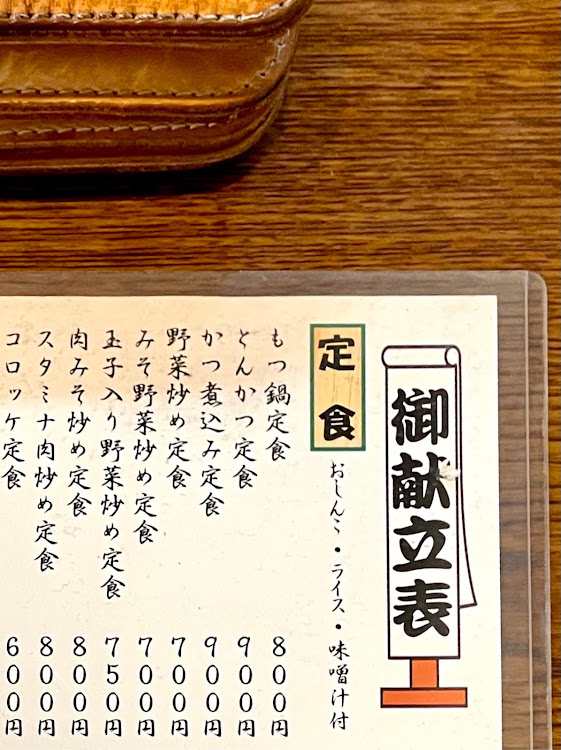 御献立表
定食
おしんこ・ライス・味噌汁付
もつ鍋定食 800円
とんかつ定食 900円
かつ煮込み定食 900円
野菜炒め定食 700円
みそ野菜炒め定食 700円
玉子入り野菜炒め定食 750円
肉みそ炒め定食 800円
スタミナ肉炒め定食 800円
コロッケ定食 600円